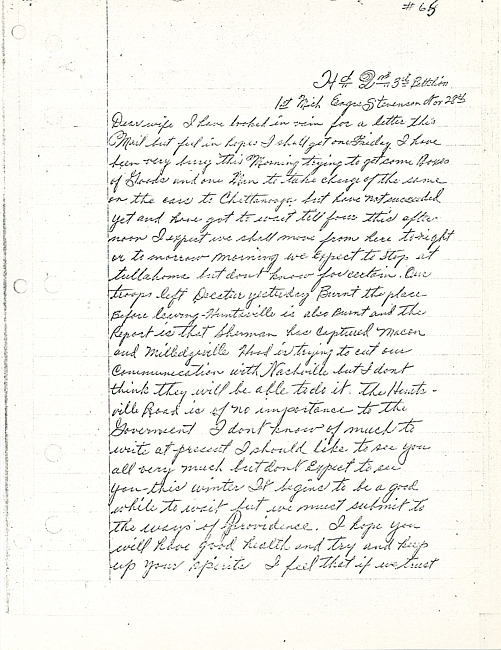 # 65
Hd Qrs 3rd Battalion
1st Mich Engrs Stevenson Nov 28th
Dear wife I have looked in vain for a letter this
Mail but feel in hopes I shall get one Friday I have
been very busy this Morning trying to get some Boxes
of Goods and one Man to take charge of the same
on the cars to Chattanooga but have not succeeded
yet and have got to wait till four this after
noon I expect we shall move from here to night
or to morrow morning we Expect to stop at
tullahoma but dont know for certain. Our
troops left Decatur yesterday Burnt the place
Before leaving Huntsville is also Burnt and the
Report is that Sherman has Captured Macon
and Milledgeville Hood is trying to cut our
Communication with Nashville but I dont
think they will be able to do it. the Hunts-
ville Road is of no importance to the
Goverment I dont know of much to
write at present I should like to see you
all very much but dont Expect to see
you this winter It begins to be a good
while to wait but we must submit to
the ways of Providence. I hope you
will have good health and try and keep
up your spirits I feel that if we trust